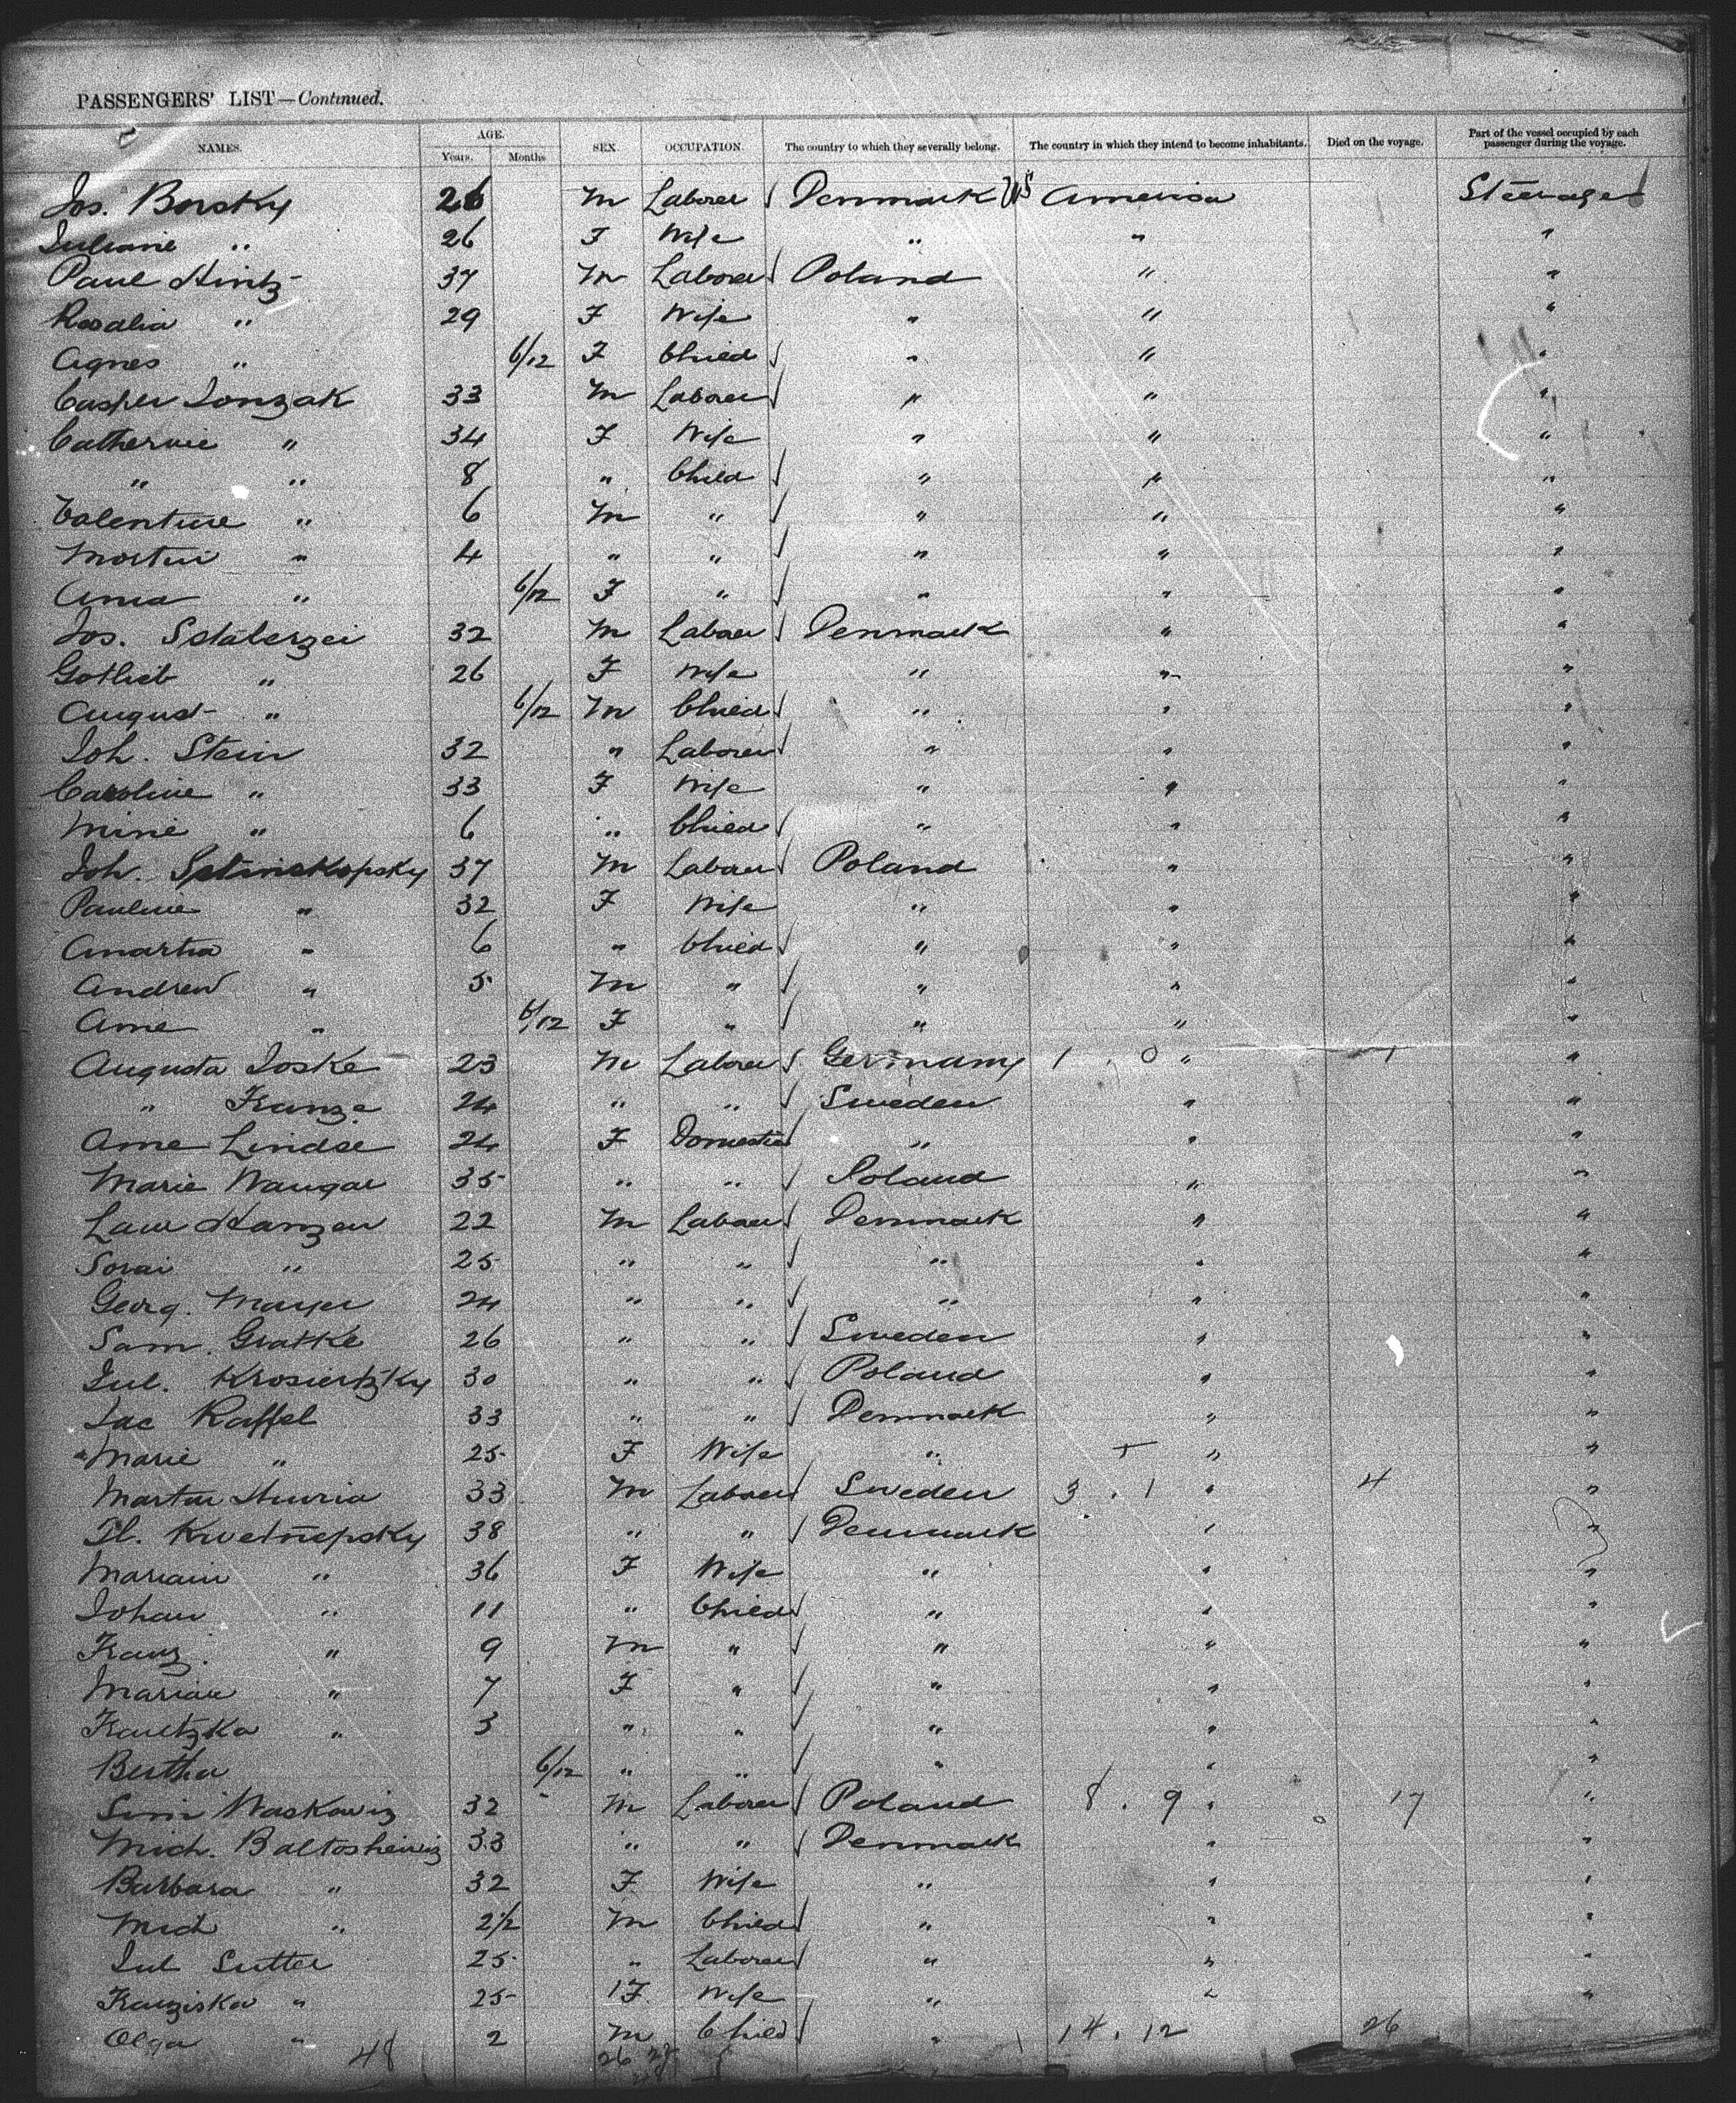 PASSENGERS' LIST—Continued.
NAMES. AGE. Years. Months SEX OCCUPATION. The country to which they severally belong. The country in which they intend to become inhabitants. Died on the voyage. Part of the vessel occupied by each passenger during the voyage.
Jos. Borsky 26 M Laborer Denmark US America Steerage
Juliane " 26 F Wife " " "
Paul Hintz 37 M Laborer Poland " "
Rosalia " 29 F Wife " " "
Agnes " 6/12 F Child " " "
Casper Jonzak 33 M Laborer " " "
Catherine " 34 F Wife " " "
" " 8 " Child " " "
Valentine " 6 M " " " "
Martin " 4 " " " " "
Anna " 6/12 F " " " "
Jos. Sdalerzei 32 M Laborer Denmark " "
Gotlieb " 26 F Wife " " "
August " 6/12 M Child " " "
Joh. Stein 32 " Laborer " " "
Caroline " 33 F Wife " " "
Minie " 6 " Child " " "
Joh. 37 M Laborer Poland " "
Pauline " 32 F Wife " " "
Amartha " 6 " Child " " "
Andrew " 5 M " " " "
Anne " 6/12 F " " " "
Augusta Joske 23 M Laborer Germany 1 . 0 " 1 "
" Franze 24 " " Sweden " "
Anne Lindse 24 F Domestic " " "
Marie Waugar 35 " " Poland " "
Laur Hanzen 22 M Laborer Denmark " "
Sorai " 25 " " " " "
Georg. Mayer 24 " " " " "
Sam. Gratke 26 " " Sweden " "
Jul. Krosiertzky 30 " " Poland " "
Jac Raffel 33 " " Denmark " "
Marie " 25 F Wife " " "
Martin 33 M Laborer Sweden 3 . 1 " 4 "
Kwetnepsky 38 " " Denmark " "
Mariain " 36 F Wife " " "
Johan " 11 " Child " " "
Franz. " 9 M " " " "
Marian " 7 F " " " "
Frantzka " 3 " " " " "
Bertha 6/12 " " " " "
Waskowiz 32 M Laborer Poland 8 . 9 " 17 "
Mich. Baltosheiwiz 33 " " Denmark " "
Barbara " 32 F Wife " " "
Mich " 2 1/2 M Child " " "
Jul Sutter 25 " Laborer " " "
Franziska " 25 F Wife " " "
Olga " 2 M Child " 14 . 12 26
48 26 22